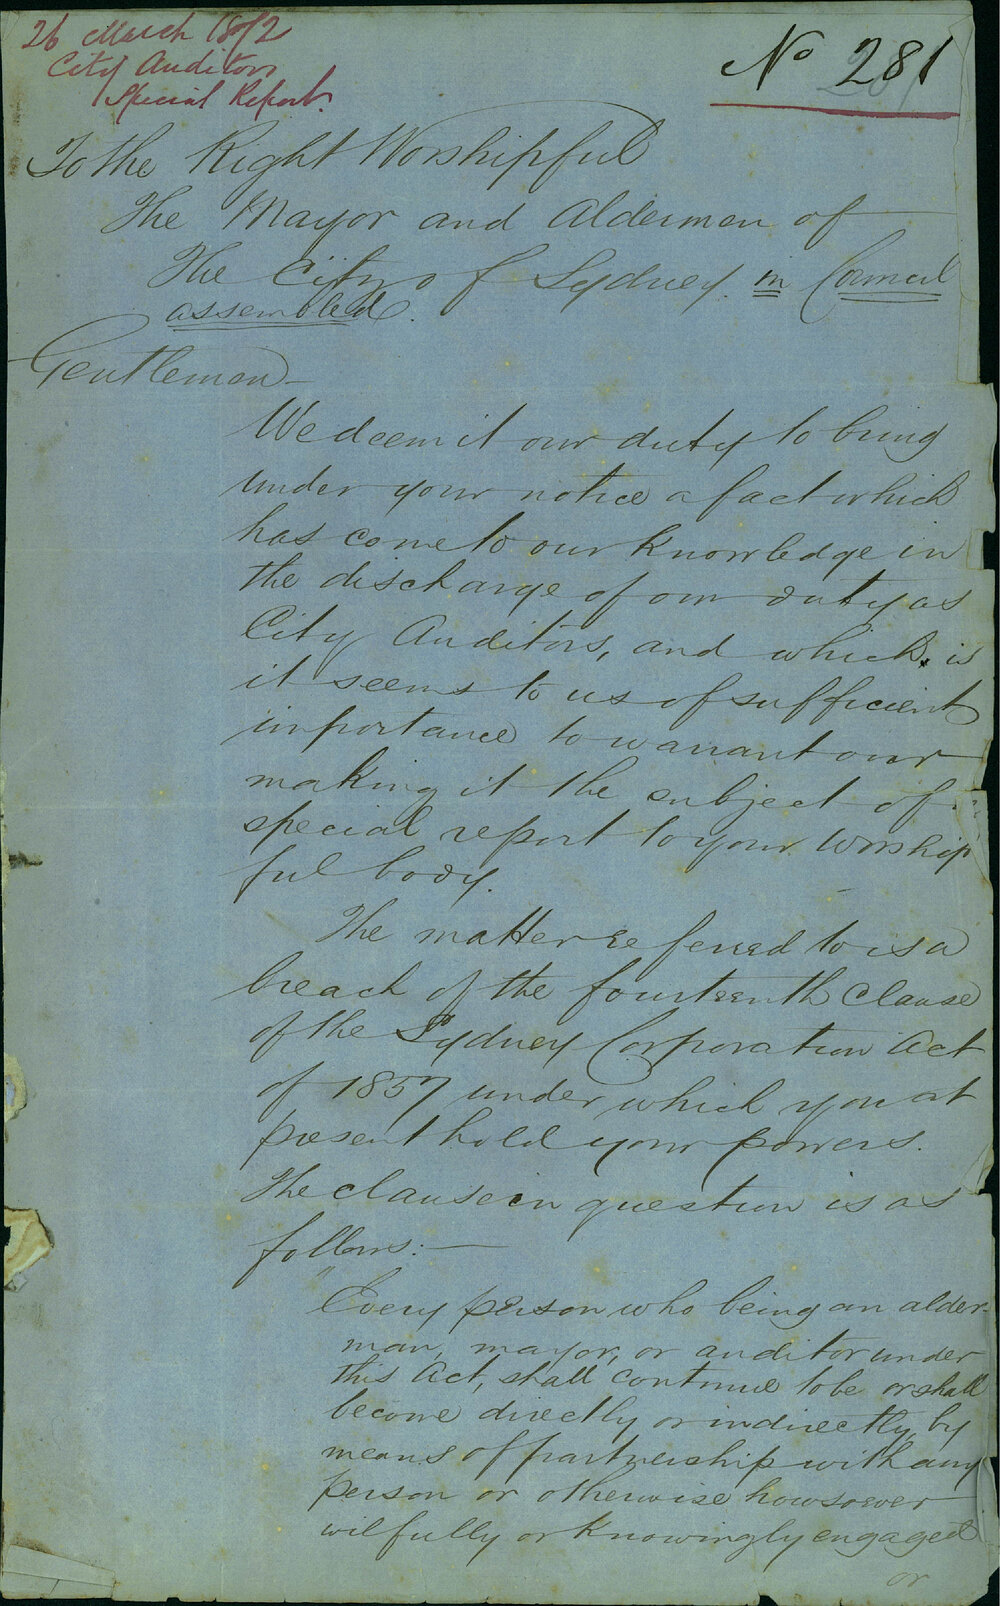 26 March 1872
City Auditors
Special Report.
No 281
To the Right Worshipful
The Mayor and Aldermen of
The City of Sydney. in Council
assembled.
Gentlemen
We deem it our duty to bring
under your notice a fact which
has come to our knowledge in
the discharge of our duty as
City Auditors, and which is
it seems to us of sufficient
importance to warrant our
making it the subject of
special report to your worship
ful body.
The matter referred to is a
breach of the fourteenth clause
of the Sydney Corporation Act
of 1857 under which you at
present hold your powers.
The clause in question is as
follows: —
"Every person who being an alder-
man, mayor, or auditor under
this Act, shall continue to be or shall
become directly or indirectly, by
means of partnership with any
person or otherwise howsoever
wilfully or knowingly engaged
or